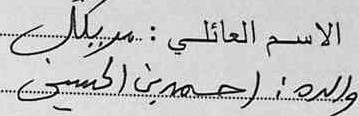 الاسم العائلي : مربيكل
والده : احمد بن الحسين